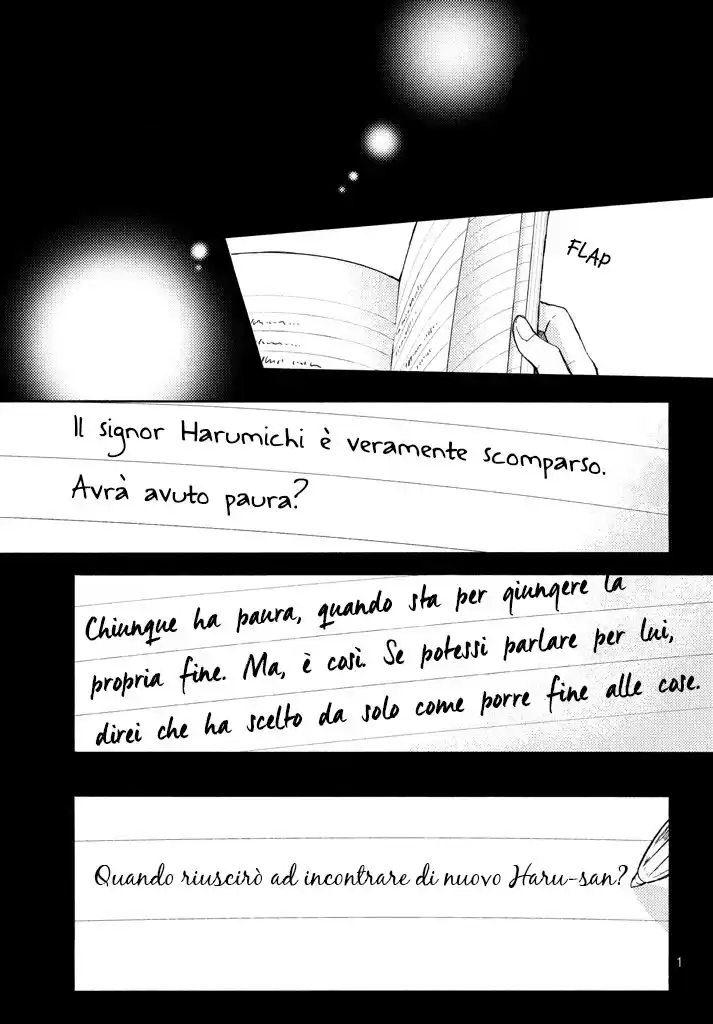 FLAP
Il signor Harumichi è veramente scomparso.
Avrà avuto paura?
Chiunque ha paura, quando sta per giungere la
propria fine. Ma, è così. Se potessi parlare per lui,
direi che ha scelto da solo come porre fine alle cose.
Quando riuscirò ad incontrare di nuovo Haru-san?
1